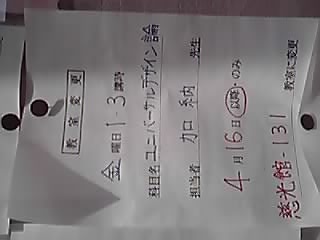 教室変更
金曜日1-3講時
科目名 ユニバーサルデザイン論
担当者 加納 先生
4月16日(以降)のみ
慈光館-131 教室に変更